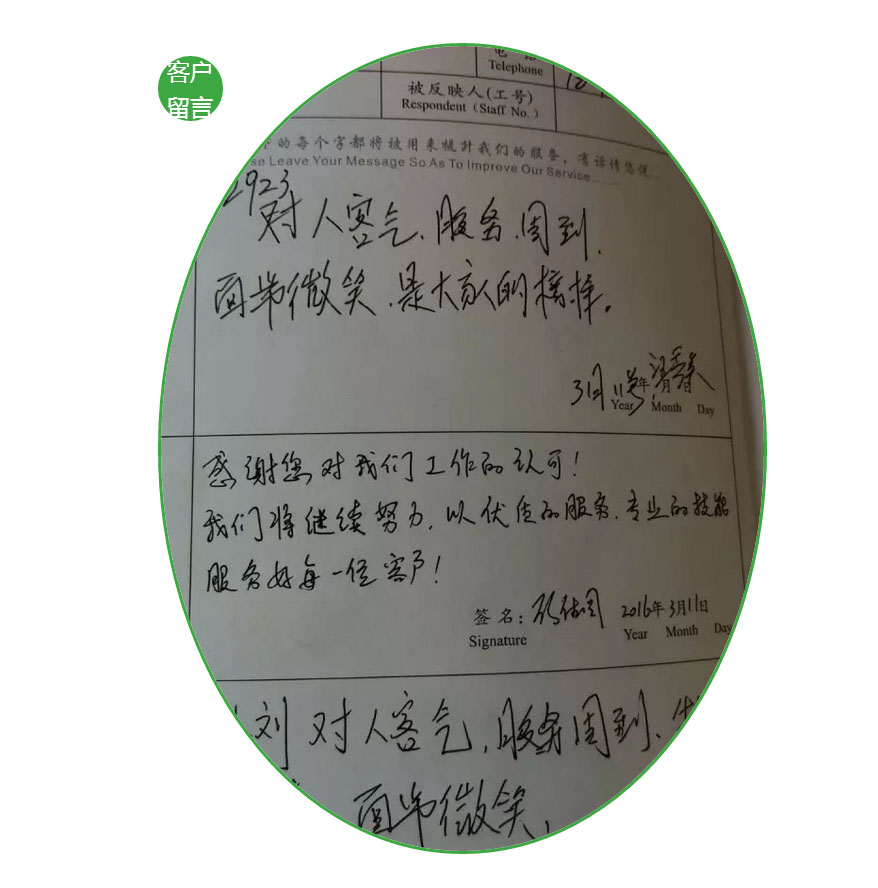 客户
留言
Telephone
被反映人(工号)
Respondent (Staff No.)
的每个字都将被用来提升我们的服务,有话请您说……
Leave Your Message So As To Improve Our Service ……
2923
对人客气、服务周到、
面带微笑、是大家的榜样。
3月11号年
Year Month Day
感谢您对我们工作的认可!
我们将继续努力,以优质的服务、专业的技能
服务好每一位客户!
签名: 2016年3月11日
Signature Year Month Day
刘对人客气,服务周到、
面带微笑,